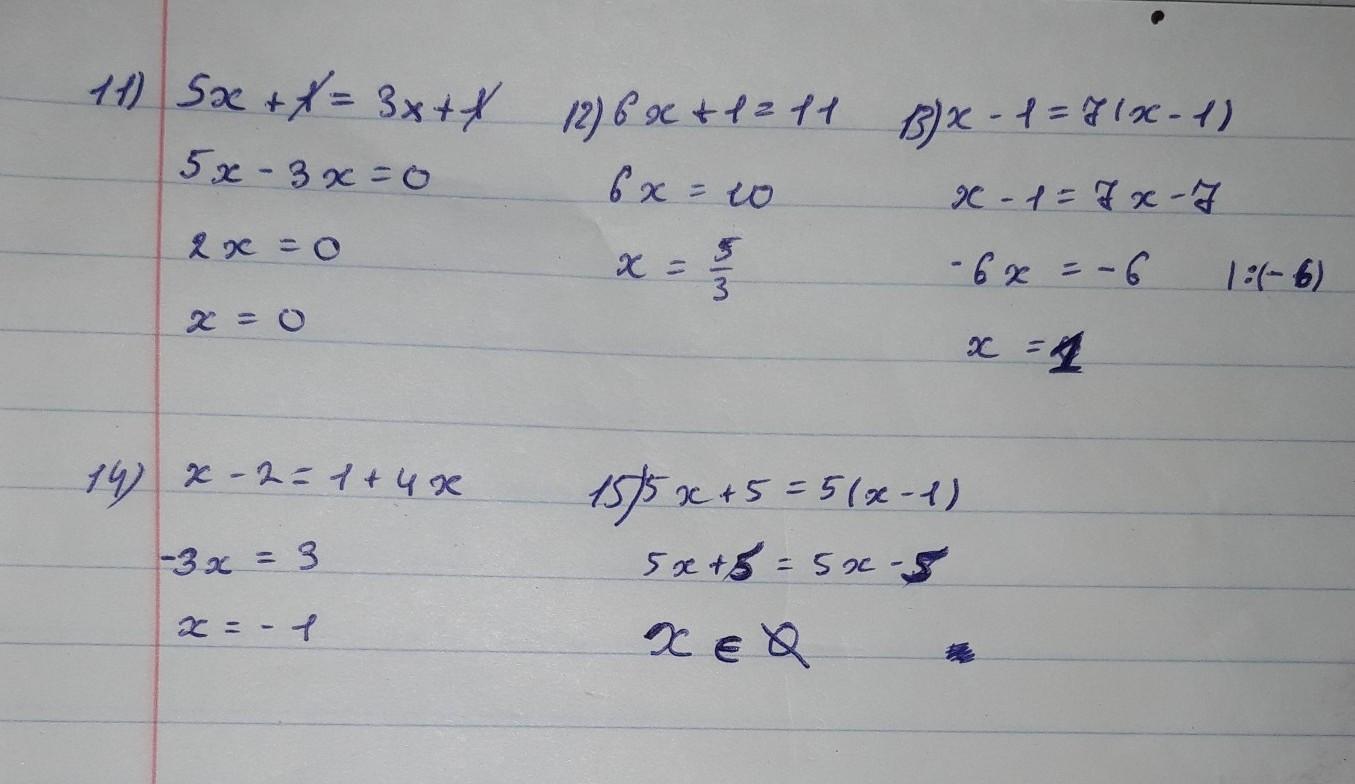 11) 5x + 1 = 3x + 1
5x - 3x = 0
2x = 0
x = 0
12) 6x + 1 = 11
6x = 10
x = 5/3
13) x - 1 = 7(x - 1)
x - 1 = 7x - 7
-6x = -6 |:(-6)
x = 1
14) x - 2 = 1 + 4x
-3x = 3
x = -1
15) 5x + 5 = 5(x - 1)
5x + 5 = 5x - 5
x ∈ Ø